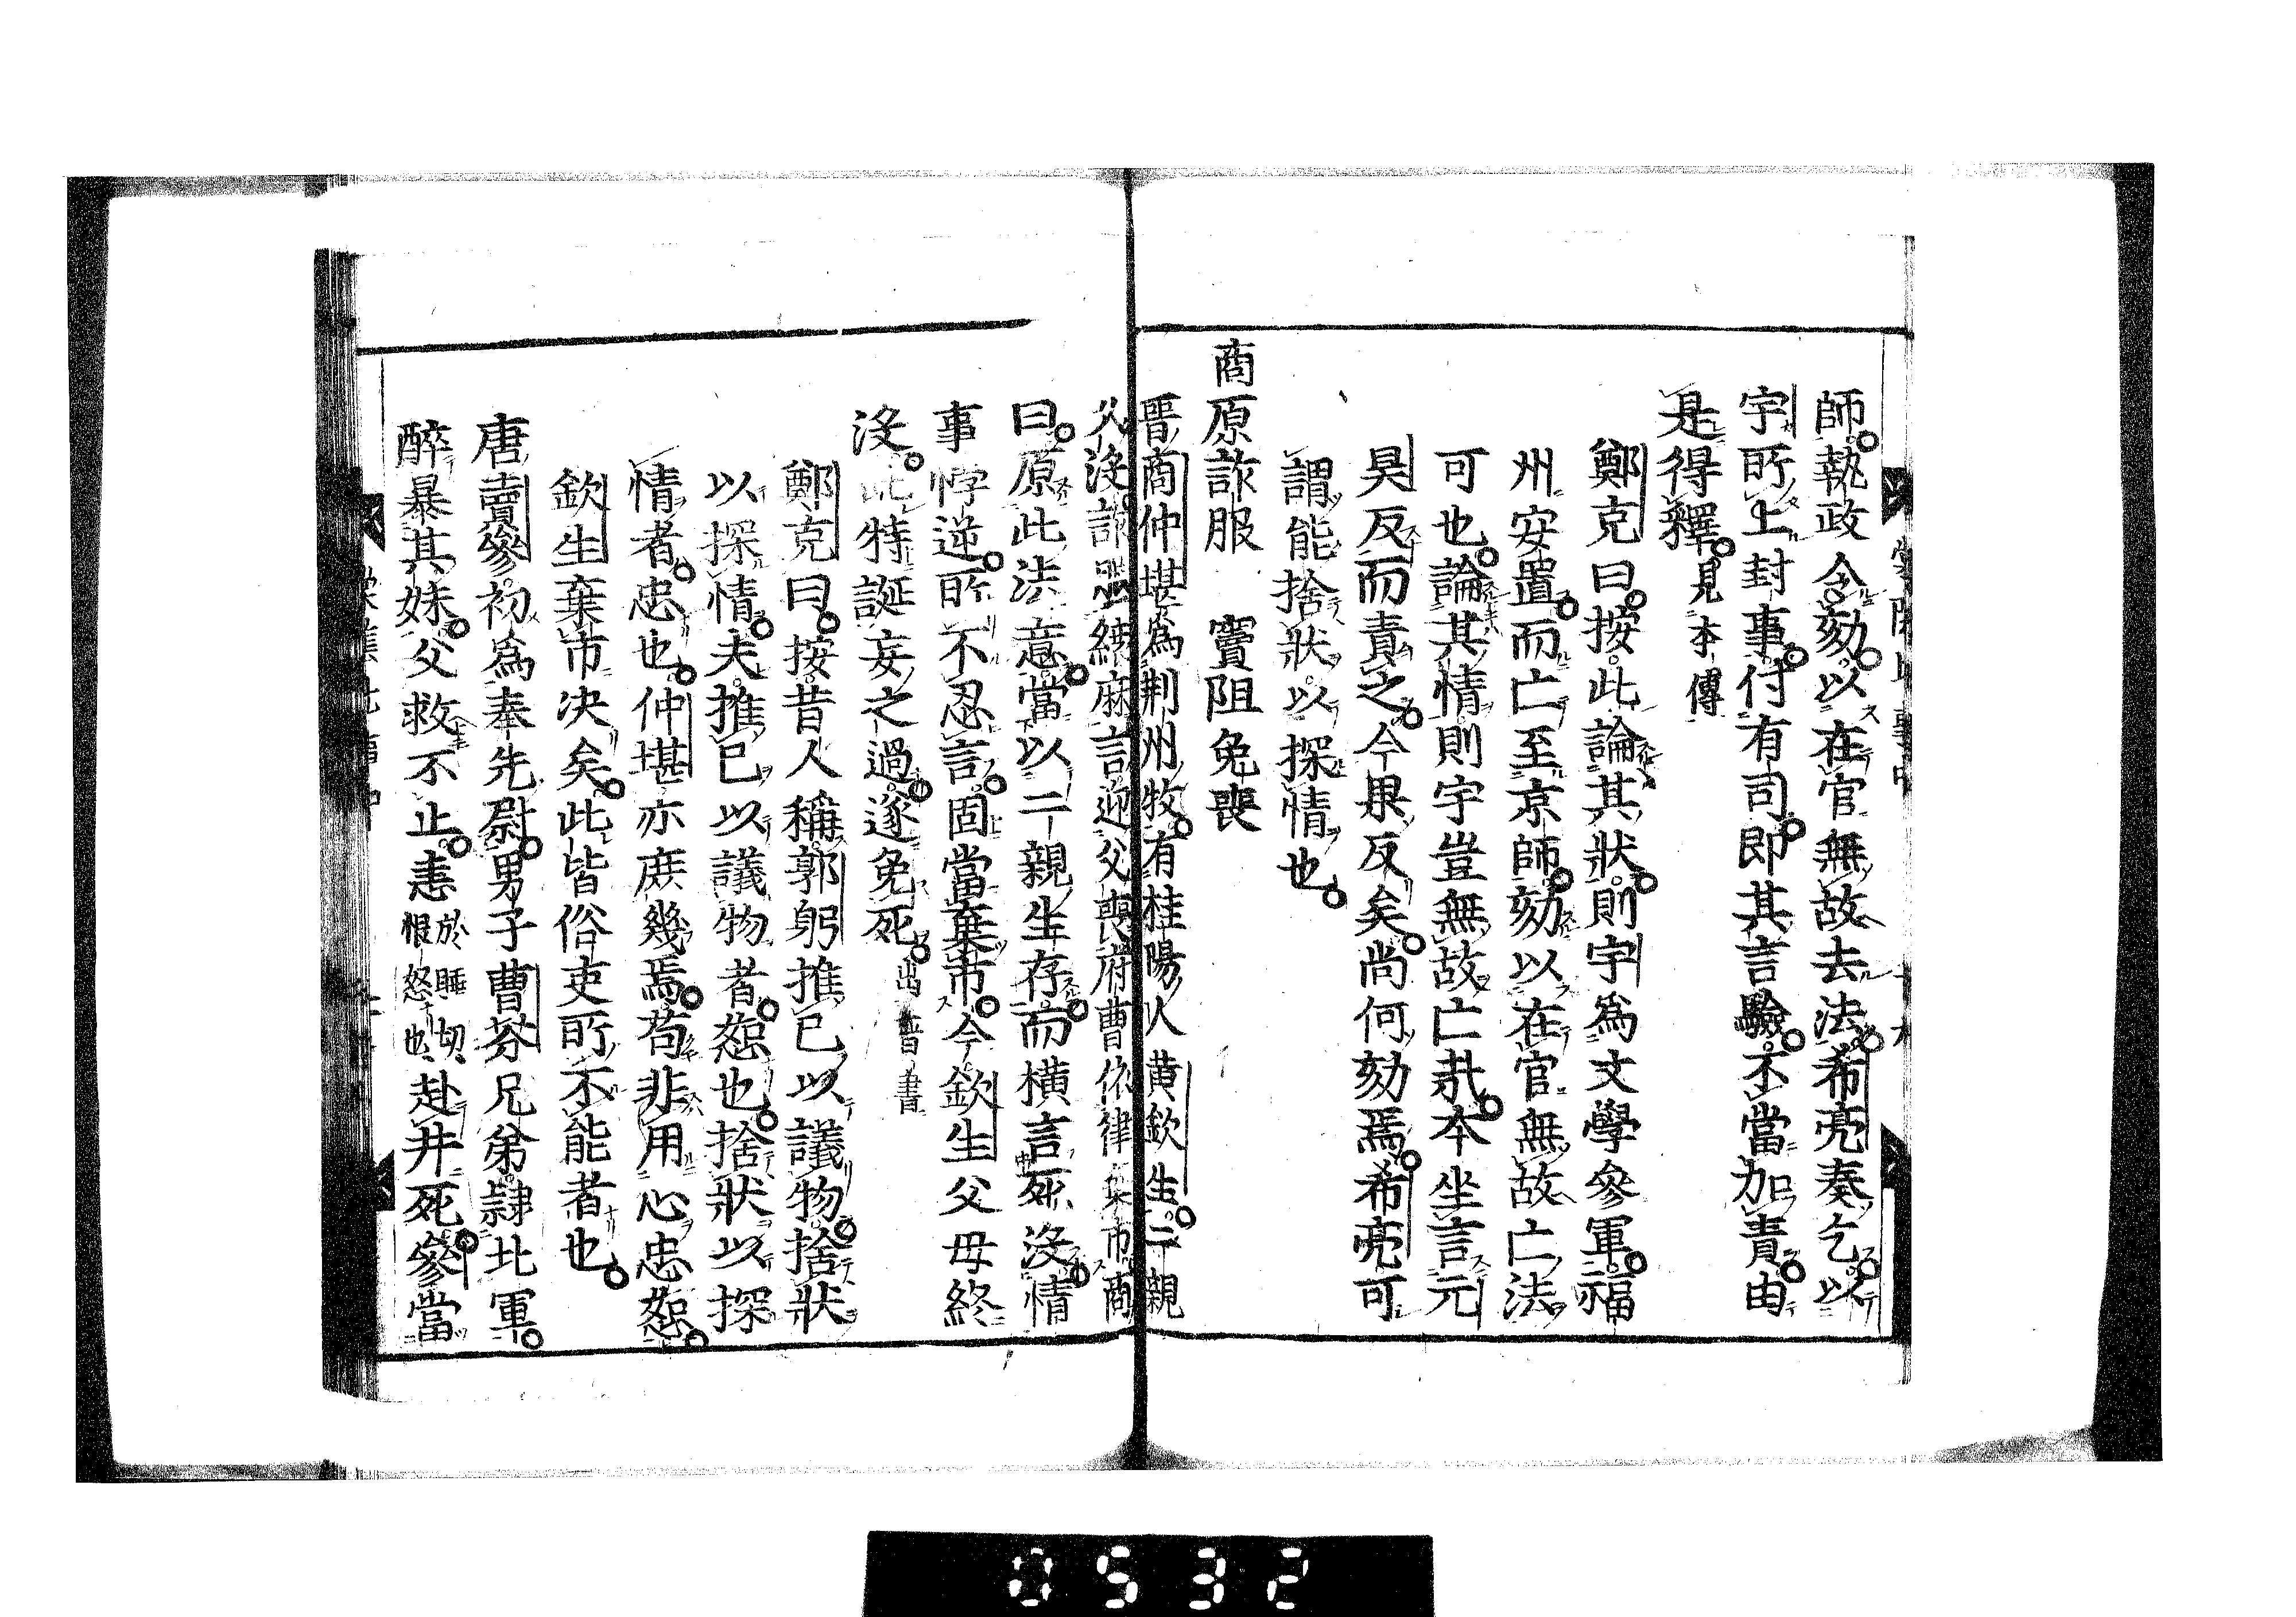 師執政令劾以在官無故去法希亮奏乞以
宇所上封事付有司即其言驗不當加責由
是得釋見本傳
鄭克曰按此論其狀則宇爲文學參軍福
州安置而亡至京師劾以在官無故亡法
可也論其情則宇豈無故亡哉本坐言元
昊反而責之今果反矣尚何劾焉希亮可
謂能捨狀以探情也
商原詐服　竇阻免喪
晋商仲堪爲荆州牧有桂陽人黄欽生二親
久沒詐服縗麻言迎父喪府曹依律棄市商
曰原此法意當以二親生存而橫言死沒情
事悖逆所不忍言固當棄市今欽生父母終
沒此特誕妄之過遂免死出晋書
鄭克曰按昔人稱郭躬推已以議物捨狀
以探情夫推已以議物者恕也捨狀以探
情者忠也仲堪亦庶幾焉苟非用心忠恕
欽生棄市决矣此皆俗吏所不能者也
唐竇參初爲奉先尉男子曹芬兄弟隷北軍
醉暴其妹父救不止恚於睡切恨怒也赴井死參當
0532